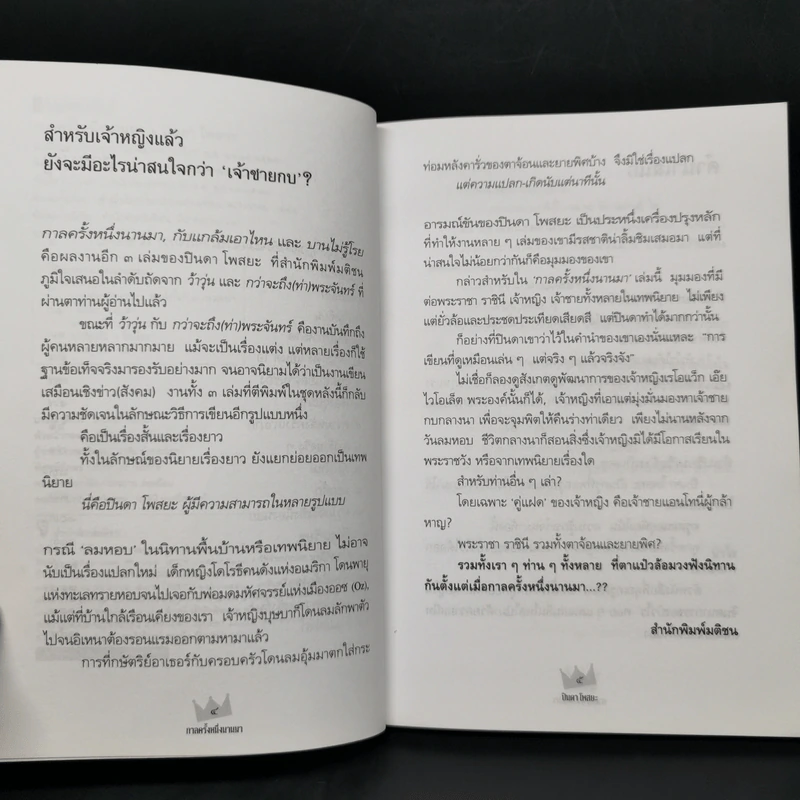 สำหรับเจ้าหญิงแล้ว
ยังจะมีอะไรน่าสนใจกว่า ‘เจ้าชายกบ’?
กาลครั้งหนึ่งนานมา, กับแกล้มเอาไหน และ บานไม่รู้โรย
คือผลงานอีก ๓ เล่มของปินดา โพสยะ ที่สำนักพิมพ์มติชน
ภูมิใจเสนอในลำดับถัดจาก ว้าวุ่น และ กว่าจะถึง(ท่า)พระจันทร์ ที่
ผ่านตาท่านผู้อ่านไปแล้ว
ขณะที่ ว้าวุ่น กับ กว่าจะถึง(ท่า)พระจันทร์ คืองานบันทึกถึง
ผู้คนหลายหลากมากมาย แม้จะเป็นเรื่องแต่ง แต่หลายเรื่องก็ใช้
ฐานข้อเท็จจริงมารองรับอย่างมาก จนอาจนิยามได้ว่าเป็นงานเขียน
เสมือนเชิงข่าว(สังคม) งานทั้ง ๓ เล่มที่ตีพิมพ์ในชุดหลังนี้ก็กลับ
มีความชัดเจนในลักษณะวิธีการเขียนอีกรูปแบบหนึ่ง
คือเป็นเรื่องสั้นและเรื่องยาว
ทั้งในลักษณ์ของนิยายเรื่องยาว ยังแยกย่อยออกเป็นเทพ
นิยาย
นี่คือปินดา โพสยะ ผู้มีความสามารถในหลายรูปแบบ
กรณี ‘ลมหอบ’ ในนิทานพื้นบ้านหรือเทพนิยาย ไม่อาจ
นับเป็นเรื่องแปลกใหม่ เด็กหญิงโดโรธีคนดังแห่งอเมริกา โดนพายุ
แห่งทะเลทรายหอบจนไปเจอกับพ่อมดมหัศจรรย์แห่งเมืองออซ (Oz),
แม้แต่ที่บ้านใกล้เรือนเคียงของเรา เจ้าหญิงบุษบาก็โดนลมลักพาตัว
ไปจนอิเหนาต้องรอนแรมออกตามหามาแล้ว
การที่กษัตริย์อาเธอร์กับครอบครัวโดนลมอุ้มมาตกใส่กระ
๔
กาลครั้งหนึ่งนานมา
ท่อมหลังคารั่วของตาจ้อนและยายพิศบ้าง จึงมิใช่เรื่องแปลก
แต่ความแปลก-เกิดนับแต่นาทีนั้น
อารมณ์ขันของปินดา โพสยะ เป็นประหนึ่งเครื่องปรุงหลัก
ที่ทำให้งานหลาย ๆ เล่มของเขามีรสชาติน่าลิ้มชิมเสมอมา แต่ที่
น่าสนใจไม่น้อยกว่ากันก็คือมุมมองของเขา
กล่าวสำหรับใน ‘กาลครั้งหนึ่งนานมา’ เล่มนี้ มุมมองที่มี
ต่อพระราชา ราชินี เจ้าหญิง เจ้าชายทั้งหลายในเทพนิยาย ไม่เพียง
แต่ยั่วล้อและประชดประเทียดเสียดสี แต่ปินดาทำได้มากกว่านั้น
ก็อย่างที่ปินดาเขาว่าไว้ในคำนำของเขาเองนั่นแหละ “การ
เขียนที่ดูเหมือนเล่น ๆ แต่จริง ๆ แล้วจริงจัง”
ไม่เชื่อก็ลองดูสังเกตดูพัฒนาการของเจ้าหญิงเรโอแว็ก เอ๊ย
ไวโอเล็ต พระองค์นั้นก็ได้ เจ้าหญิงที่เอาแต่มุ่งมั่นมองหาเจ้าชาย
กบกลางนา เพื่อจะจุมพิตให้คืนร่างท่าเดียว เพียงไม่นานหลังจาก
วันลมหอบ ชีวิตกลางนาก็สอนสิ่งซึ่งเจ้าหญิงมิได้มีโอกาสเรียนใน
พระราชวัง หรือจากเทพนิยายเรื่องใด
สำหรับท่านอื่น ๆ เล่า?
โดยเฉพาะ ‘คู่แฝด’ ของเจ้าหญิง คือเจ้าชายแอนโทนี่ผู้กล้า
หาญ?
พระราชา ราชินี รวมทั้งตาจ้อนและยายพิศ?
รวมทั้งเรา ๆ ท่าน ๆ ทั้งหลาย ที่ตาแป๋วล้อมวงฟังนิทาน
กันตั้งแต่เมื่อกาลครั้งหนึ่งนานมา...??
สำนักพิมพ์มติชน
๕
ปินดา โพสยะ